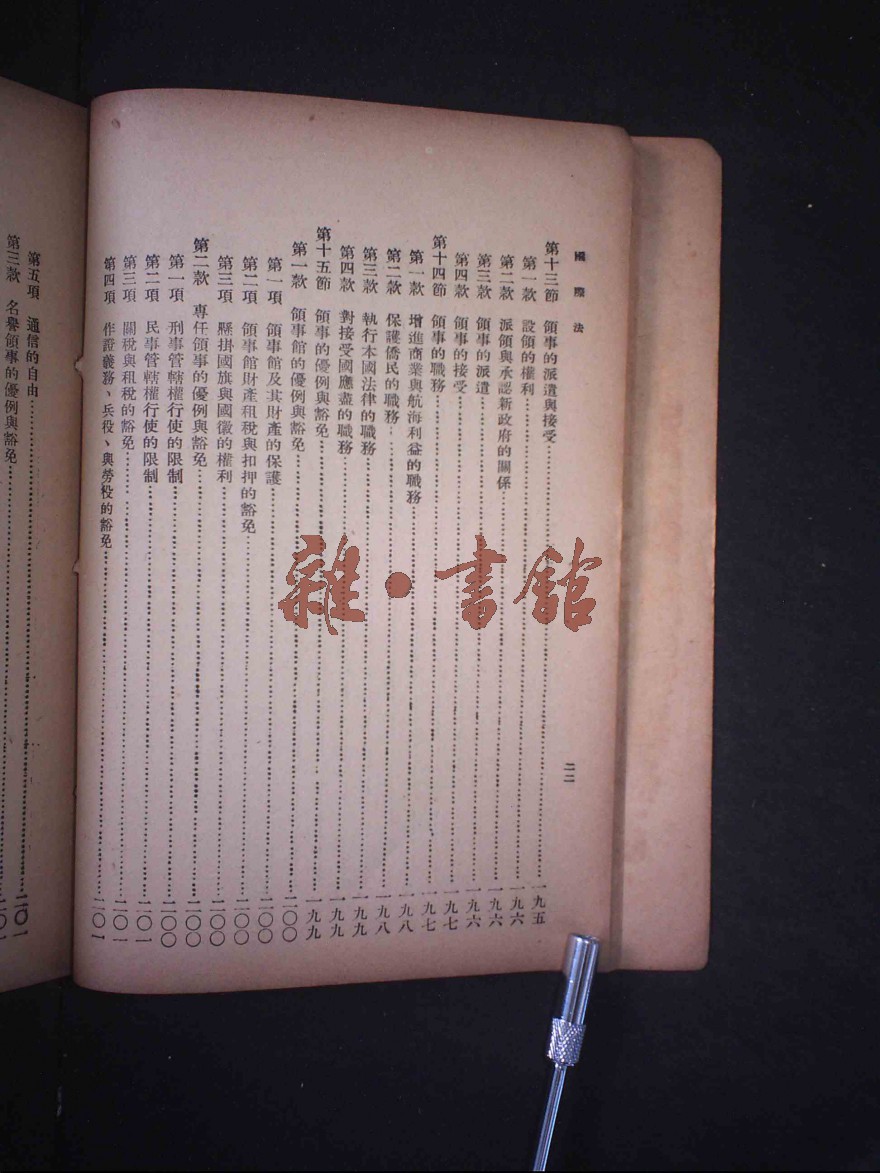 國際法
二二
第十三節 領事的派遣與接受……一九五
第一款 設領的權利……一九六
第二款 派領與承認新政府的關係……一九六
第三款 領事的派遣……一九六
第四款 領事的接受……一九七
第十四節 領事的職務……一九七
第一款 增進商業與航海利益的職務……一九八
第二款 保護僑民的職務……一九八
第三款 執行本國法律的職務……一九九
第四款 對接受國應盡的職務……一九九
第十五節 領事的優例與豁免……一九九
第一款 領事館的優例與豁免……二〇〇
第一項 領事館及其財產的保護……二〇〇
第二項 領事館財產租稅與扣押的豁免……二〇〇
第三項 懸掛國旗與國徽的權利……二〇〇
第二款 專任領事的優例與豁免……二〇〇
第一項 刑事管轄權行使的限制……二〇〇
第二項 民事管轄權行使的限制……二〇一
第三項 關稅與租稅的豁免……二〇一
第四項 作證義務、兵役、與勞役的豁免……二〇一
第五項 通信的自由……二〇一
第三款 名譽領事的優例與豁免……二〇一
雜·書館